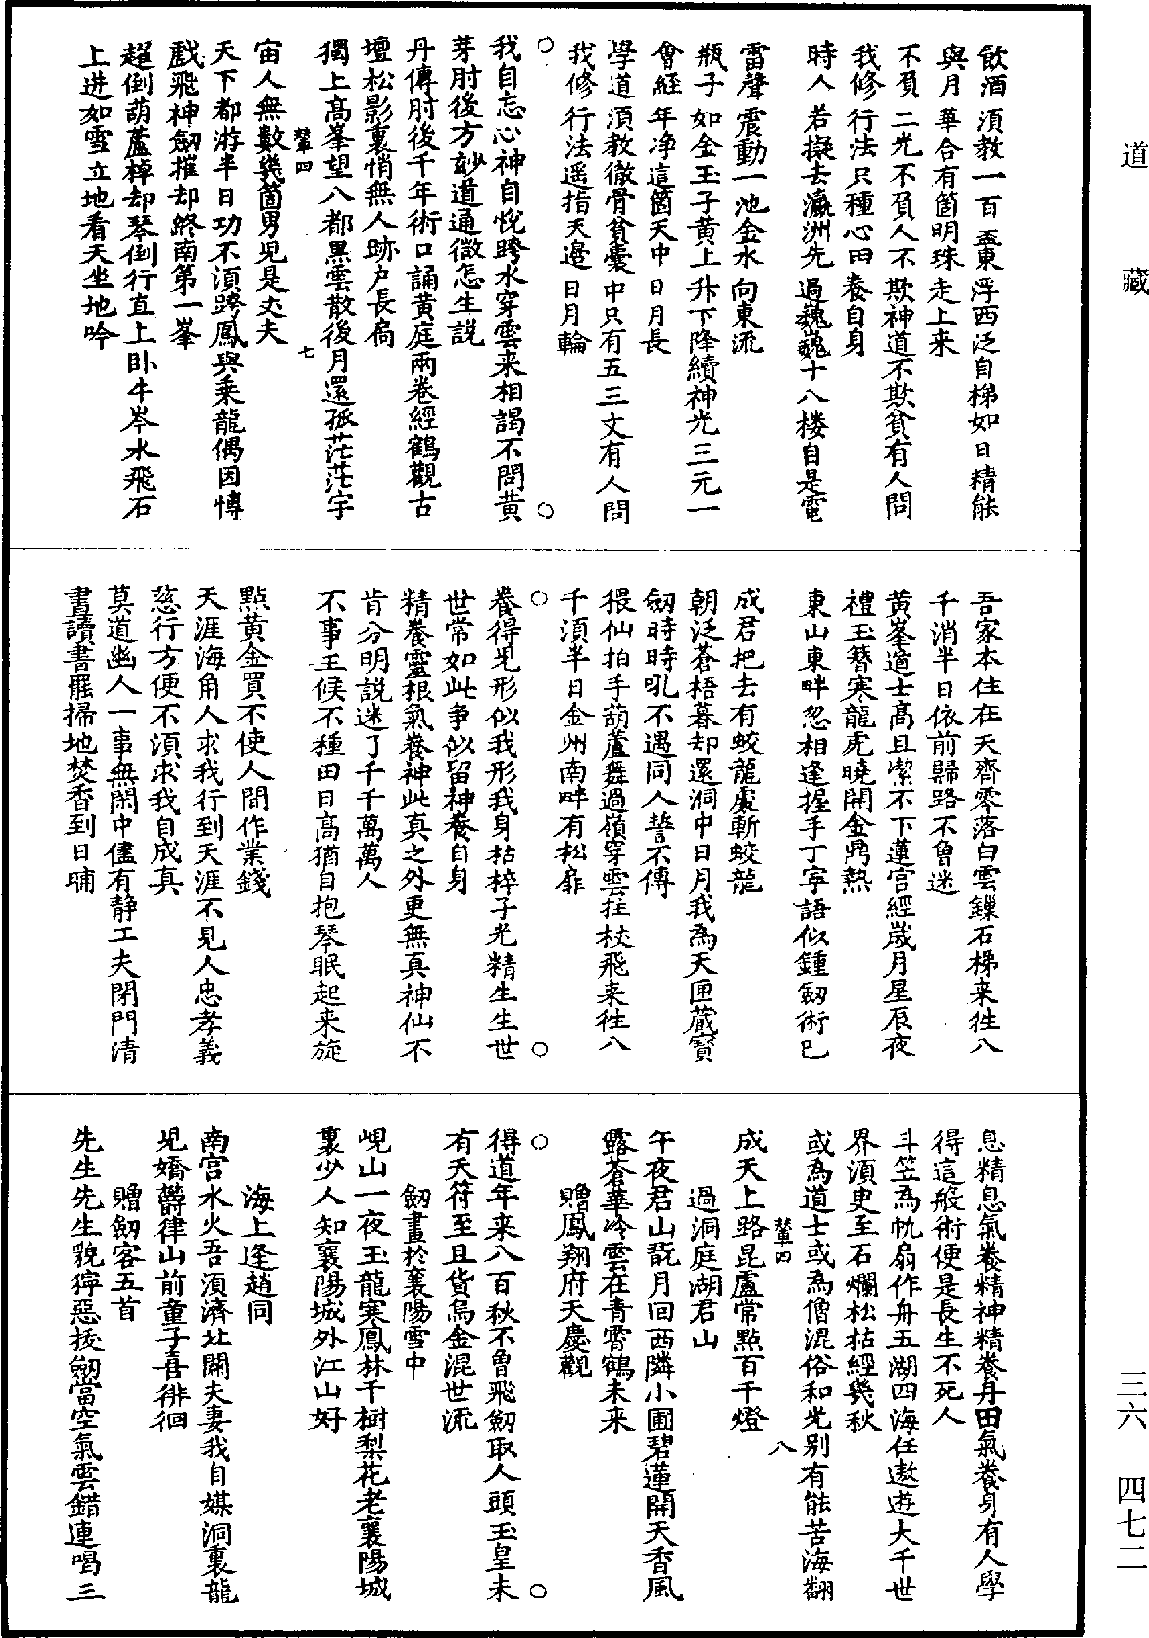 道藏
飲酒須教一百盃東浮西泛自梯如日精能
與月華合有箇明珠走上来
不負二光不負人不欺神道不欺貧有人問
我修行法只種心田養自身
時人若擬去瀛洲先過巍巍十八楼自是電
雷聲震動一池金水向東流
瓶子如金玉子黄上升下降續神光三元一
會經年净這箇天中日月長
學道須教徹骨貧囊中只有五三文有人問
我修行法遥指天邉日月輪
○○
我自忘心神自悦跨水穿雲来相謁不問黄
芽肘後方妙道通微怎生説
丹傳肘後千年術口誦黄庭兩卷經鶴觀古
壇松影裏悄無人跡户長扃
獨上高峯望八都黑雲散後月還孤茫茫宇
輦四 七
宙人無數幾箇男兒是丈夫
天下都游半日功不須跨鳳與乘龍偶因博
戲飛神劒摧却終南第一峯
超倒葫蘆棹却琴倒行直上卧牛岑水飛石
上迸如雪立地看天坐地吟
吾家本住在天齊零落白雲鏁石梯来往八
千消半日依前歸路不曾迷
黄峯道士高且㓗不下蓮宫經歲月星辰夜
禮玉簪寒龍虎曉開金鼎熱
東山東畔忽相逢握手丁寧語似鍾劒術已
成君把去有蛟龍處斬蛟龍
朝泛蒼梧暮却還洞中日月我為天匣藏寳
劒時時吼不遇同人誓不傳
偎仙拍手葫蘆舞過嶺穿雲拄杖飛来往八
千須半日金州南畔有松扉
○○
養得兒形似我形我身枯梓子光精生生世
世常如此争似留神養自身
精養靈根氣養神此真之外更無真神仙不
肯分明説迷了千千萬萬人
不事王候不種田日高猶自抱琴眠起来旋
點黄金買不使人間作業錢
天涯海角人求我行到天涯不見人忠孝義
慈行方便不須求我自成真
莫道幽人一事無閑中儘有静工夫閉門清
晝讀書罷掃地焚香到日晡
息精息氣養精神精養丹田氣養身有人學
得這般術便是長生不死人
斗笠為帆扇作舟五湖四海任遨遊大千世
界須史至石爛松枯經幾秋
或為道士或為僧混俗和光别有能苦海翻
輦四 八
成天上路昆盧常點百千燈
過洞庭湖君山
午夜君山翫月回西隣小圃碧蓮開天香風
露蒼華冷雲在青霄鶴未来
贈鳳翔府天慶觀
○○
得道年来八百秋不曾飛劒取人頭玉皇未
有天符至且貨烏金混世流
劒畫於襄陽雪中
峴山一夜玉龍寒鳳林千樹梨花老襄陽城
裏少人知襄陽城外江山好
海上逢趙同
南宫水火吾須濟北闕夫妻我自媒洞裏龍
兒嬌欝律山前童子喜徘徊
贈劒客五首
先生先生貌獰惡拔劒當空氣雲錯連喝三
三六 四七二